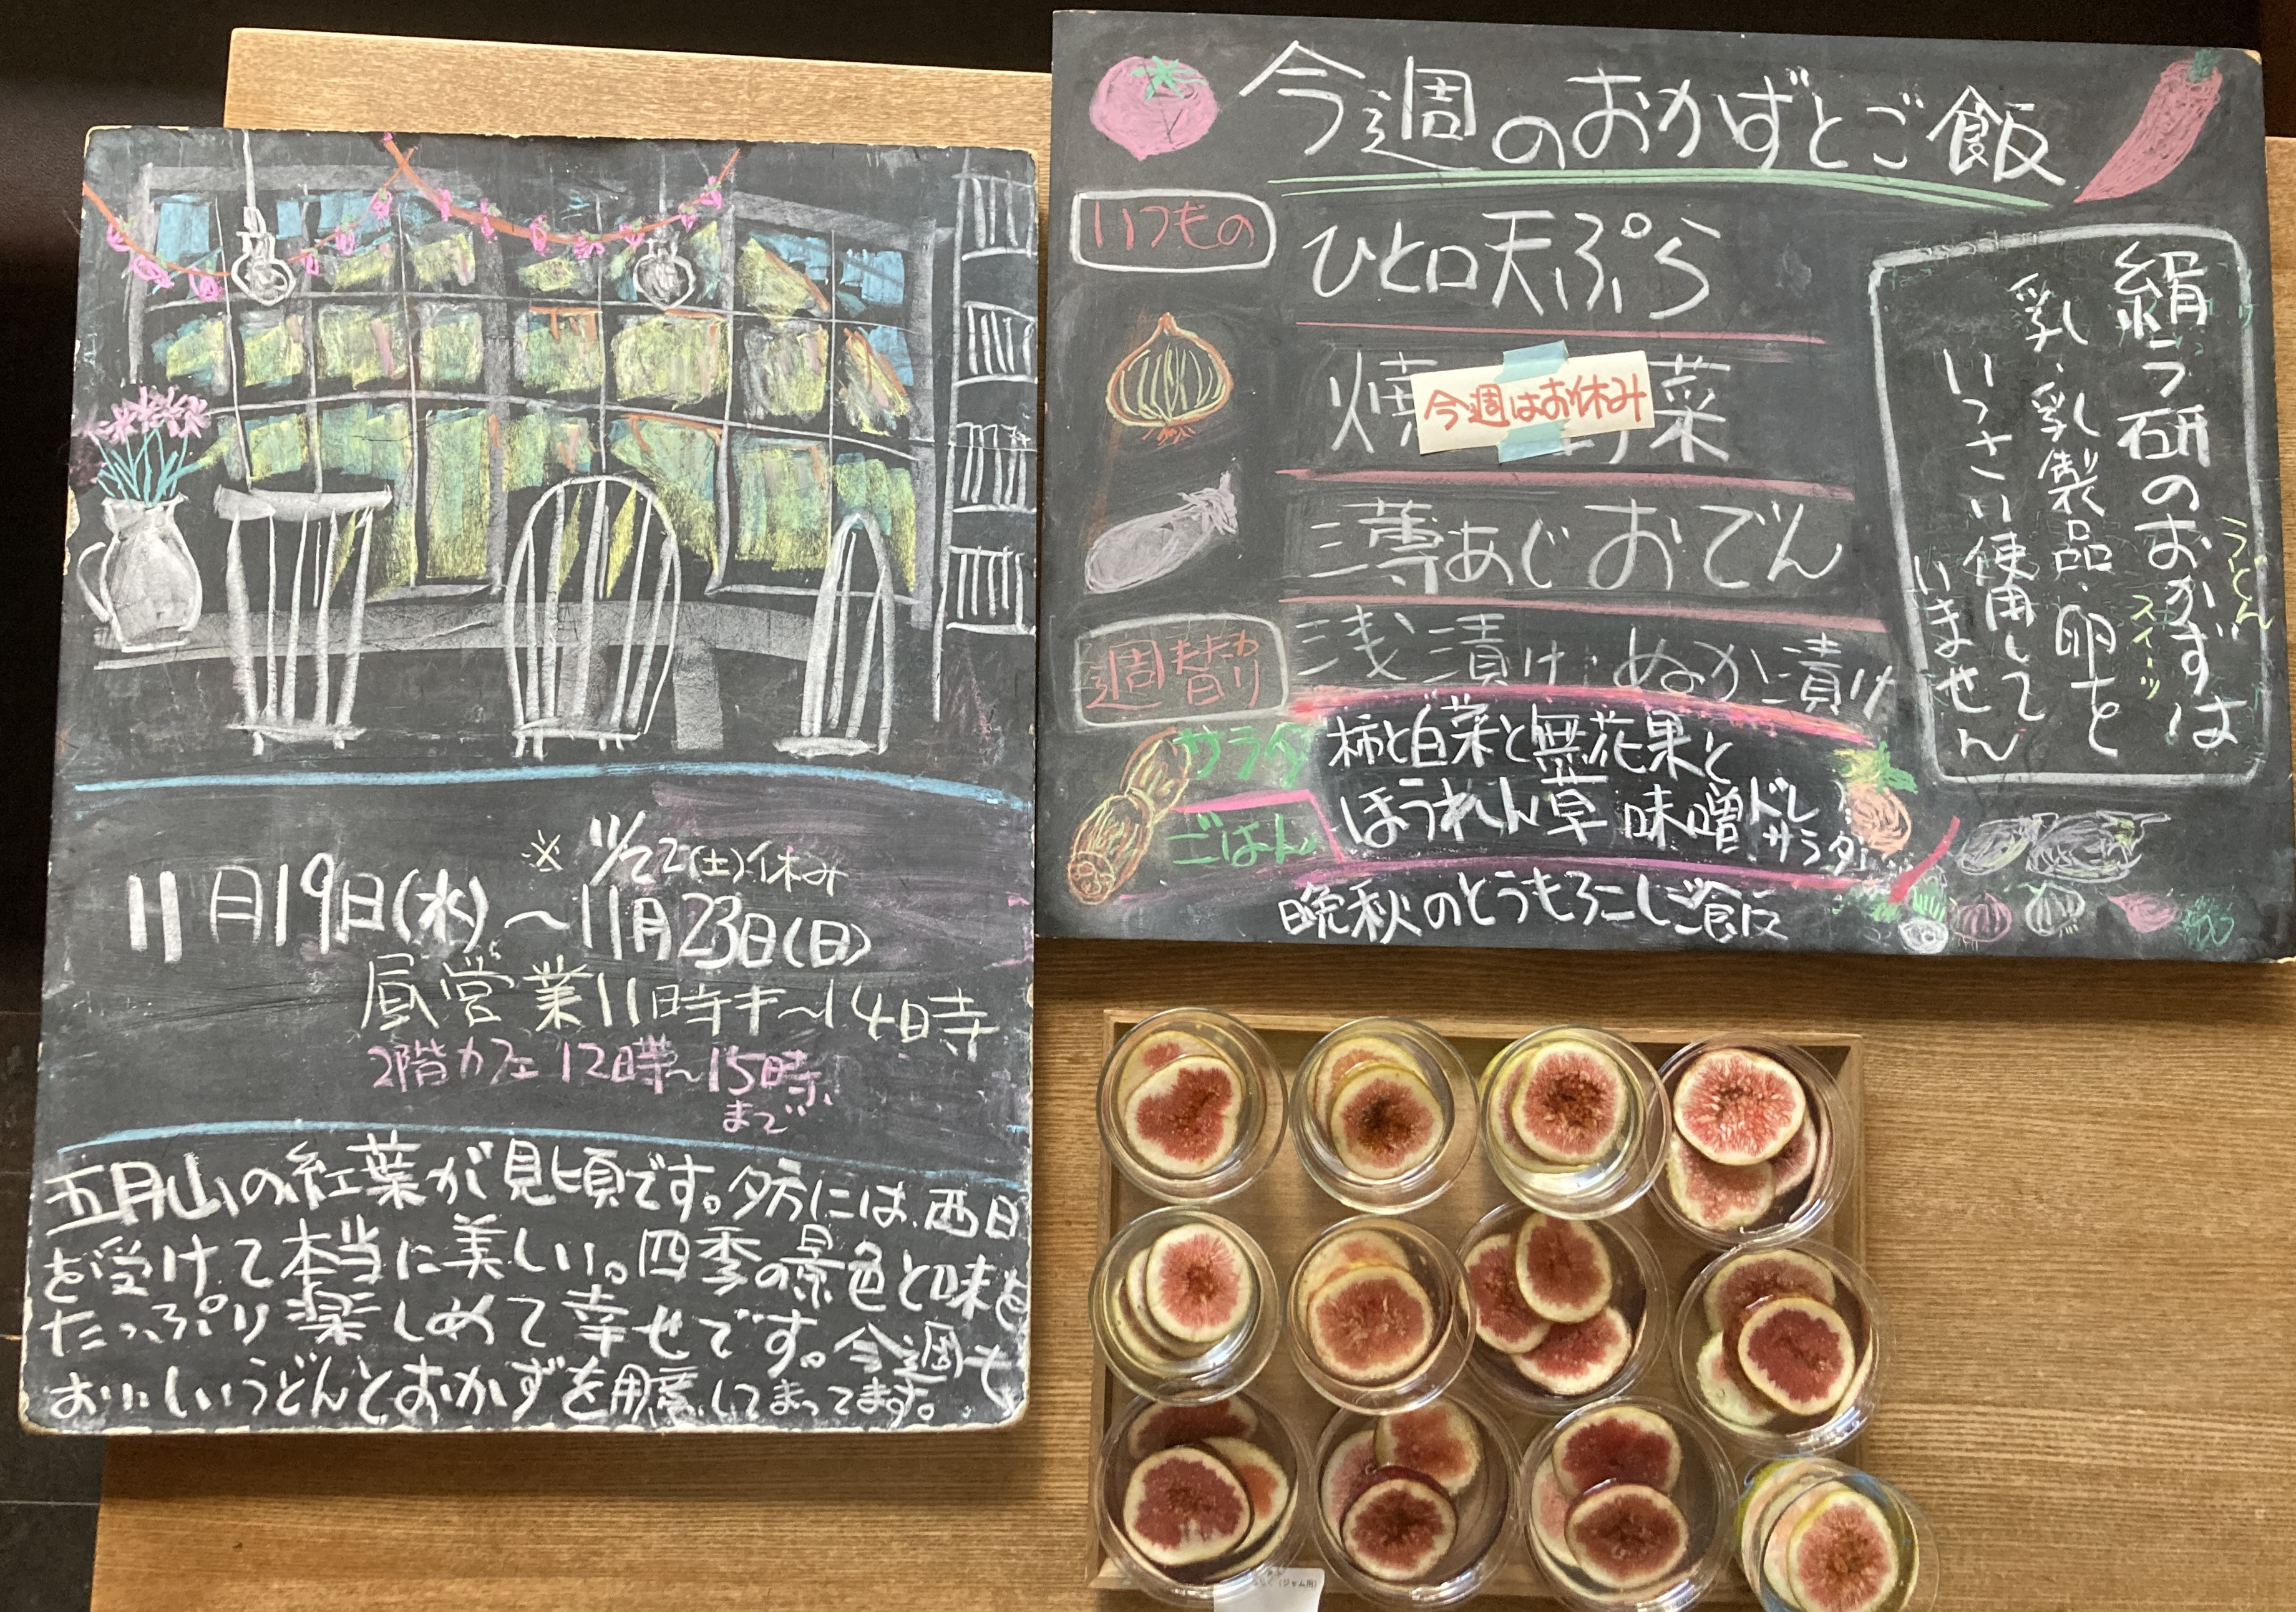 ※ 11/22(土)休み
11月19日(水)～11月23日(日)
昼営業11時半～14時
2階カフェ 12時～15時
まで
五月山の紅葉が見頃です。夕方には、西日
を受けて本当に美しい。四季の景色と味を
たっぷり楽しめて幸せです。今週も
おいしいうどんとおかずを用意してまってます。
今週のおかずとご飯
いつもの
ひと口天ぷら
焼 菜
今週はお休み
薄あじおでん
週替わり
浅漬け・ぬか漬け
サラダ
柿と白菜と無花果と
ほうれん草 味噌ドレ
サラダ
ごはん
晩秋のとうもろこしご飯
絹う研のおかずは
うどん
スイーツ
乳・乳製品・卵を
いっさい使用して
いません
(ジャム用)